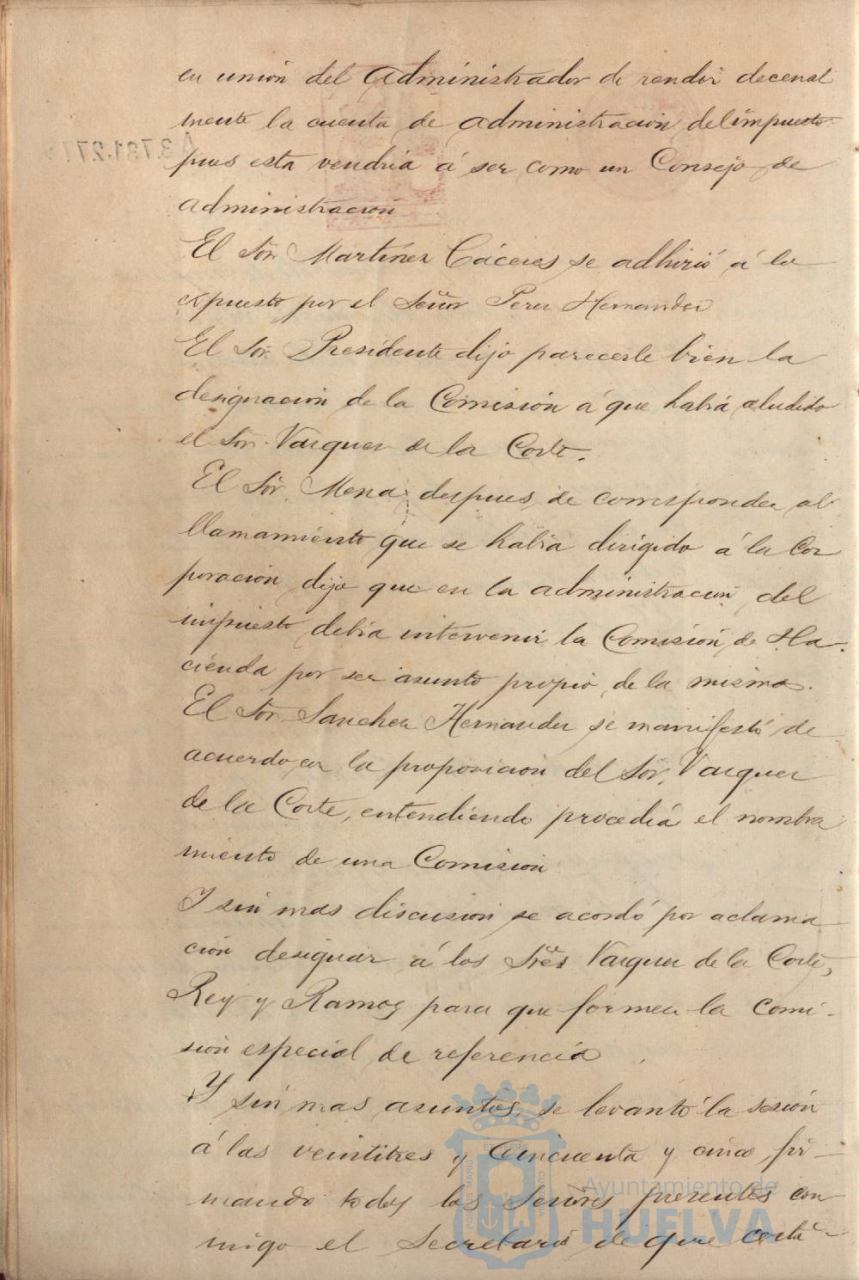 en unión del Administrador de rendir decenal
mente la cuenta de administracion del impuesto
pues esta vendria á ser como un Consejo de
administracion
El Sor. Martinez Cáceres se adhirió á lo
expuesto por el Señor Perez Hernandez
El Sor. Presidente dijo parecerle bien la
designacion de la Comision á que habiá aludido
el Sor. Vazquez de la Corte.
El Sor. Mena, despues de corresponder al
llamamiento que se habia dirigido á la Cor
poracion dijo que en la administracion del
impuesto debia intervenir la Comisión de Ha-
cienda por ser asunto propio de la misma.
El Sor. Sanchez Hernandez se manifestó de
acuerdo con la proposicion del Sor. Vazquez
de la Corte, entendiendo procediá el nombra
miento de una Comision
Y sin mas discusion se acordó por aclama
ción designar á los Sres Vazquez de la Corte,
Rey y Ramos para que formen la comi-
sion especial de referencia.
Y sin mas asuntos, se levantó la sesión
á las veintitres y cincuenta y cinco fir-
mando todos los Señores presentes con
migo el Secretario de que certi-
A3.731.277
Ayuntamiento de
HUELVA